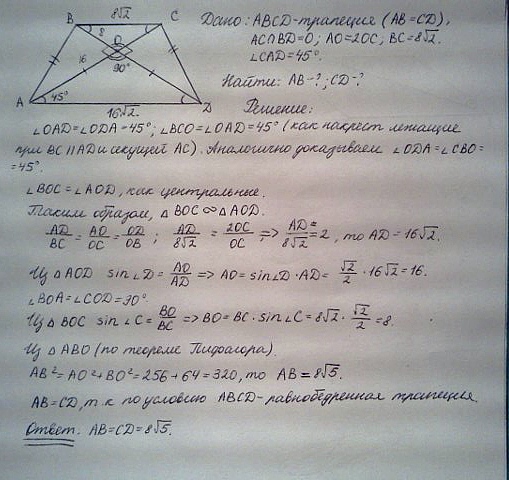 B 8√2 C
8 O
16 90°
A 45° D
16√2
Дано: ABCD-трапеция (AB=CD),
AC∩BD=O; AO=2OC; BC=8√2.
∠CAD=45°.
Найти: AB-?; CD-?
Решение:
∠OAD=∠ODA=45°; ∠BCO=∠OAD=45° (как накрест лежащие
при BC∥AD и секущей AC). Аналогично доказываем ∠ODA=∠CBO=
=45°.
∠BOC=∠AOD, как центральные.
Таким образом, △BOC∞△AOD.
AD/BC = AO/OC = OD/OB; AD/8√2 = 2OC/OC; => AD/8√2 = 2, то AD=16√2.
Из △AOD sin∠D = AO/AD => AO=sin∠D·AD= √2/2 · 16√2=16.
∠BOA=∠COD=90°.
Из △BOC sin∠C= BO/BC => BO=BC·sin∠C=8√2 · √2/2 =8.
Из △ABO (по теореме Пифагора).
AB²=AO²+BO²=256+64=320, то AB=8√5.
AB=CD, т.к по условию ABCD-равнобедренная трапеция.
Ответ: AB=CD=8√5.